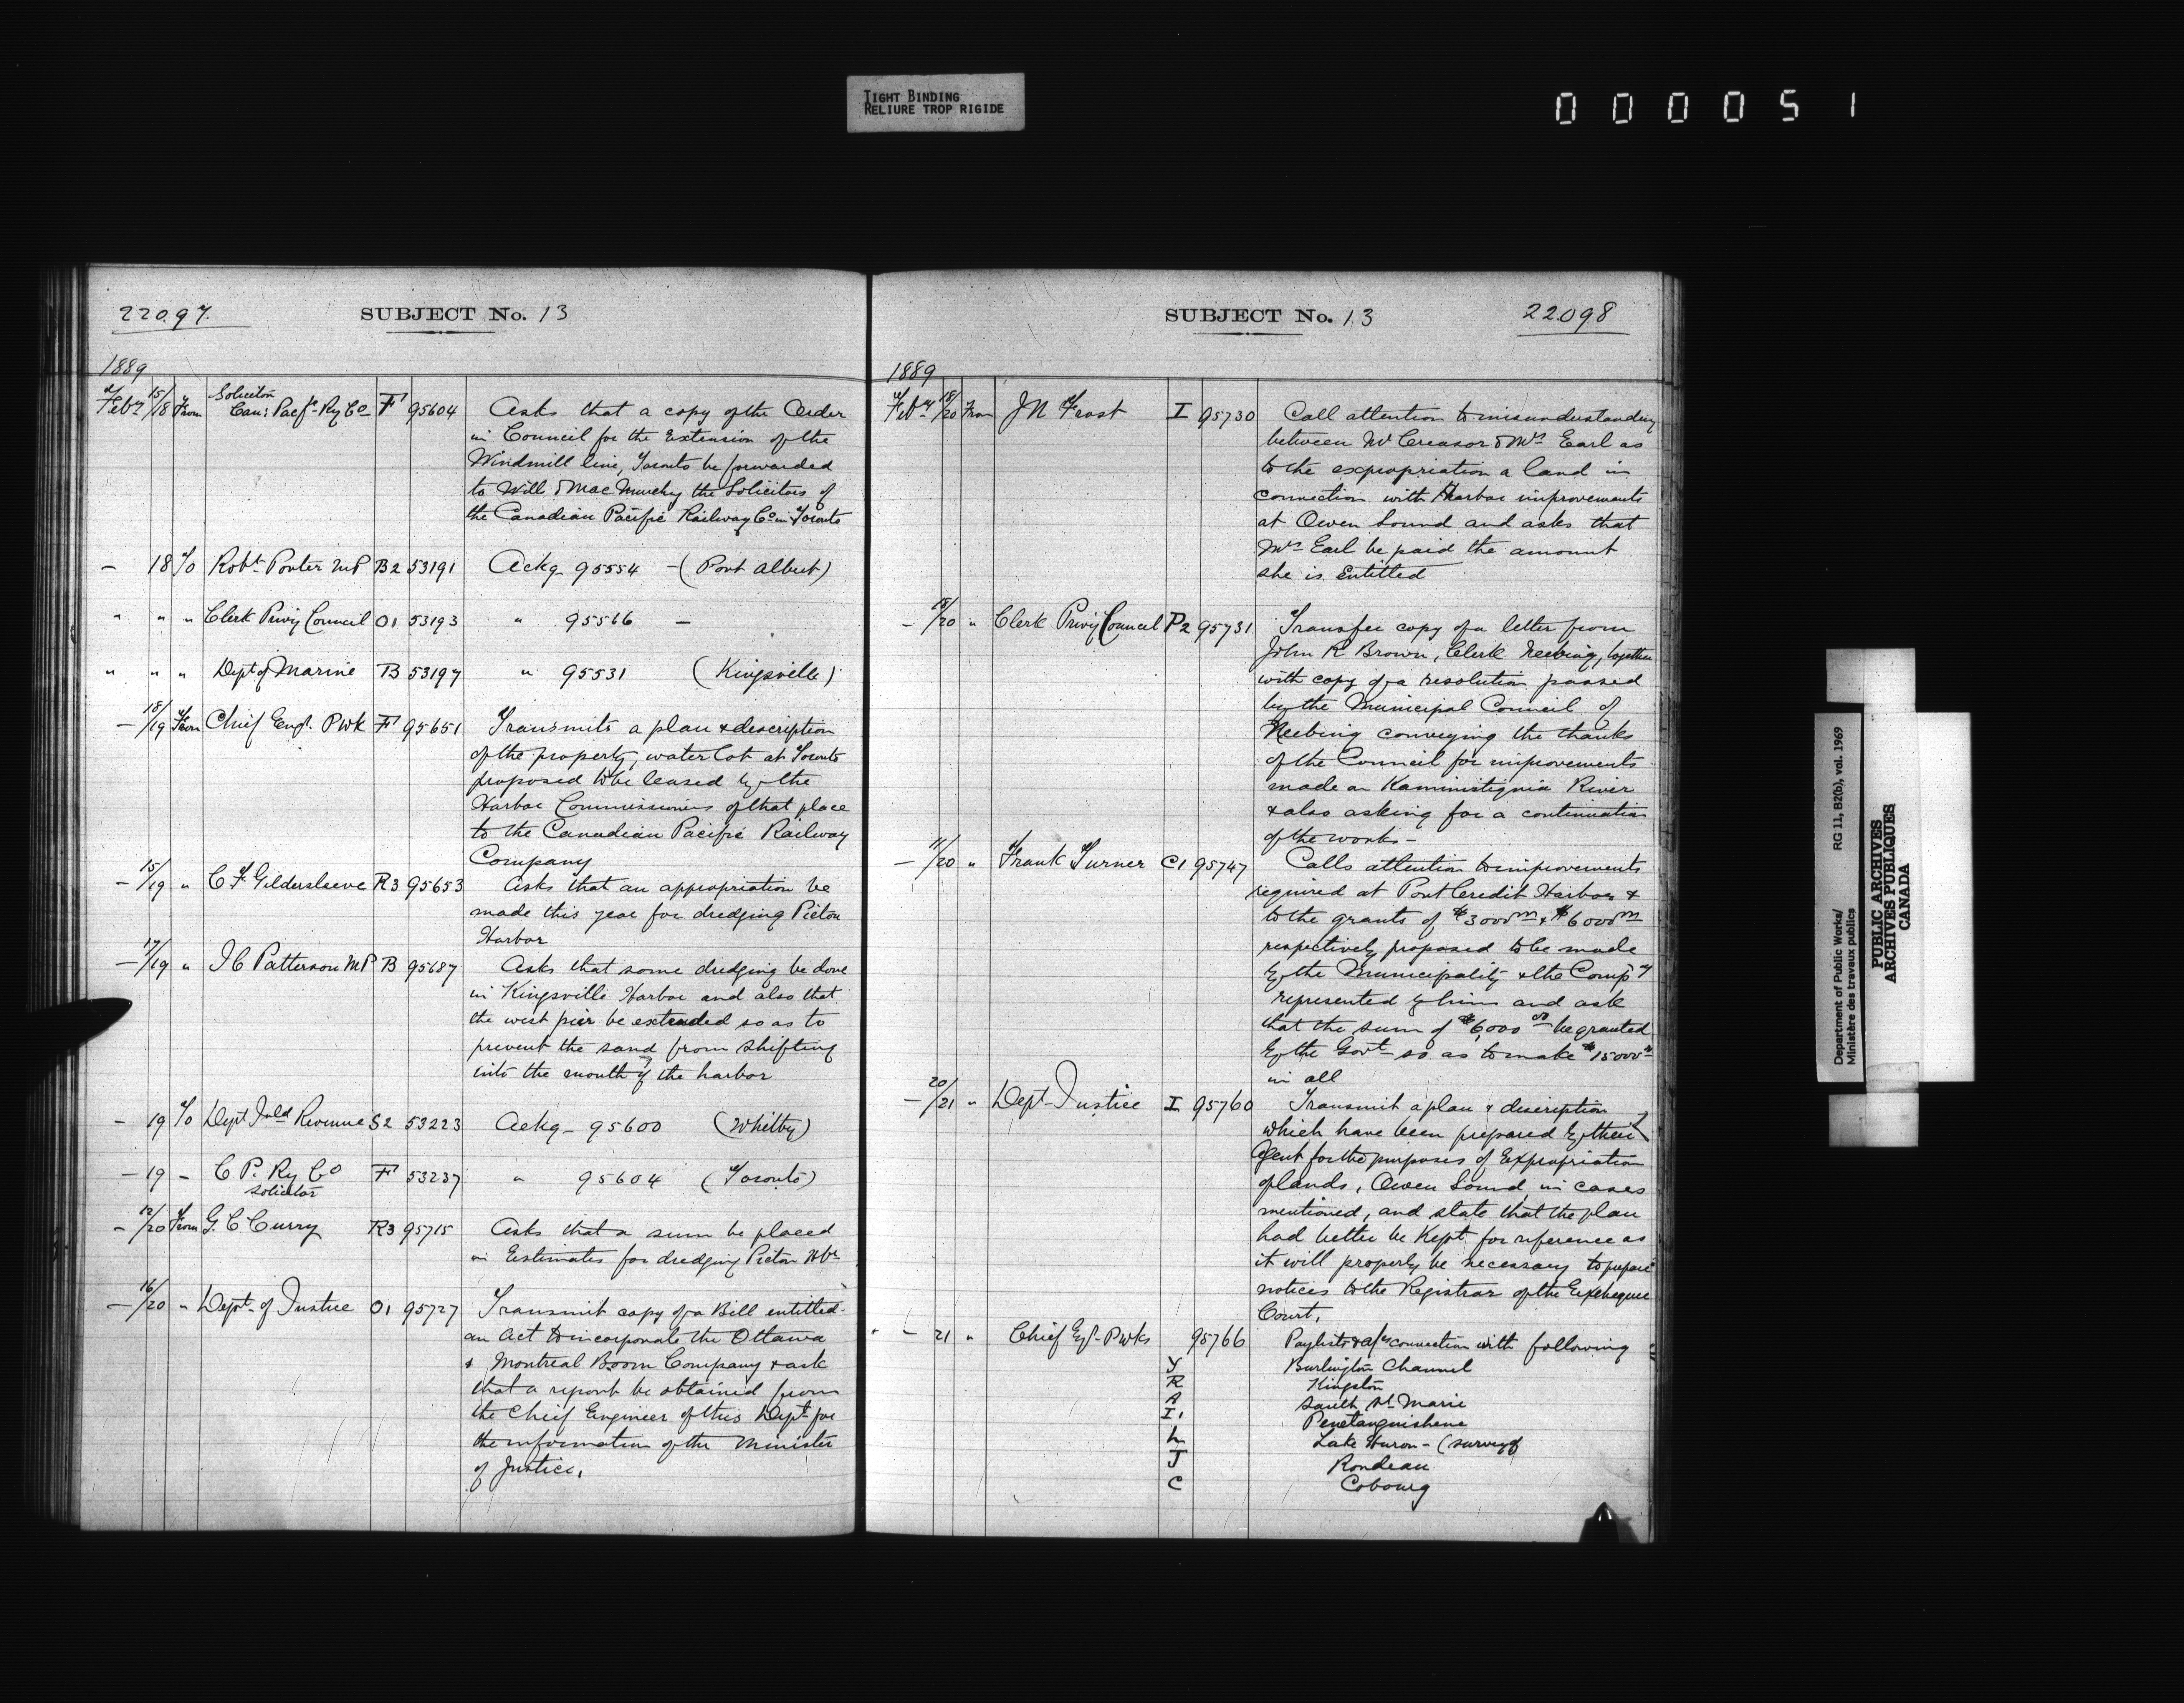 TIGHT BINDING
RELIURE TROP RIGIDE
000051
22097.
SUBJECT No. 13
1889
Feby 15/18 From Solicitor Can: Pacfc Ry Co F 95604 Asks that a copy of the Order
in Council for the Extension of the
Windmill line, Toronto be forwarded
to Wills & MacMurchy the Solicitors of
the Canadian Pacific Railway Co in Toronto
- 18 To Robt Porter MP B2 53191 Ackg 95554 - (Port Albert)
" " " Clerk Privy Council O1 53193 " 95566 -
" " " Dept of Marine B 53197 " 95531 (Kingsville)
- 18/19 From Chief Engr. PWk F 95651 Transmits a plan & description
of the property, water lot at Toronto
proposed to be leased by the
Harbor Commissioners of that place
to the Canadian Pacific Railway
Company
- 15/19 " C F Gildersleeve R3 95653 Asks that an appropriation be
made this year for dredging Picton
Harbor
- 17/19 " J C Patterson MP B 95687 Asks that some dredging be done
in Kingsville Harbor and also that
the west pier be extended so as to
prevent the sand from shifting
into the mouth of the harbor
- 19 To Dept Inld Revenue S2 53223 Ackg - 95600 (Whitby)
- 19 - C P. Ry Co F 53237 " 95604 (Toronto)
Solicitor
- 12/20 From G. C Curry R3 95715 Asks that a sum be placed
in Estimates for dredging Picton Hbr
- 16/20 " Dept. of Justice O1 95727 Transmit copy of a Bill entitled-
an Act to incorporate the Ottawa
& Montreal Boom Company & ask
that a report be obtained from
the Chief Engineer of this Dept for
the information of the Minister
of Justice.
SUBJECT No. 13
22098
1889
Feby 18/20 From J N Frost I 95730 Call attention to misunderstanding
between Mr Creasor & Mrs Earl as
to the expropriation a land in
connection with Harbor improvements
at Owen Sound and asks that
Mrs Earl be paid the amount
she is Entitled
- 18/20 " Clerk Privy Council P2 95731 Transfer copy of a letter from
John R Brown, Clerk Neebing, together
with copy of a resolution passed
by the Municipal Council of
Neebing conveying the thanks
of the Council for improvements
made on Kaministiquia River
& also asking for a continuation
of the works -
- 11/20 " Frank Turner C1 95747 Calls attention to improvements
required at Port Credit Harbor &
to the grants of $3000 & $6000
respectively proposed to be made
by the Municipality & the Compy
represented by him and ask
that the sum of $6,000 00 be granted
by the Govt so as to make $15000
in all
- 20/21 " Dept Justice I 95760 Transmit a plan & description
which have been prepared by their
Agent for the purposes of Expropriation
of lands, Owen Sound, in cases
mentioned, and state that the plan
had better be Kept for reference as
it will properly be necessary to prepare
notices to the Registrar of the Exchequer
Court.
- 21 " Chief Egr PWks 95766 Paylists & a/cs connection with following
Y Burlington Channel
R Kingston
A Sault St Marie
I. Penetanguishene
L Lake Huron - (survey of
J Rondeau
C Cobourg
Department of Public Works/
Ministère des travaux publics
RG 11, B2(b), vol. 1969
PUBLIC ARCHIVES
ARCHIVES PUBLIQUES
CANADA